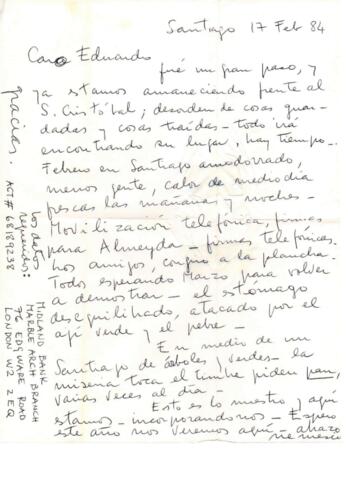 Santiago 17 Feb 84
Caro Eduardo
fué un gran paso, y
ya estamos amaneciendo frente al
S. Cristóbal; desorden de cosas guar-
dadas y cosas traídas - todo irá
encontrando su lugar, hay tiempo -
Febrero en Santiago amodorrado,
menos gente, calor de mediodía
frescas las mañanas y noches -
Movilización telefónica, firmas
para Almeyda - firmas telefónicas.
Los amigos, congrio a la plancha.
Todos esperando Marzo para volver
a demostrar - el estómago
desequilibrado, atacado por el
ají verde y el pebre -
En medio de un
Santiago de árboles y verdes - la
miseria toca el timbre piden pan,
varias veces al día -
Esto es lo nuestro y aquí
estamos - incorporándonos - Espero
este año nos veremos aquí - abrazo
los datos
requeridos:
MIDLAND BANK
MARBLE ARCH BRANCH
96 EDGWARE ROAD
LONDON W2 2EQ
ACT# 68189238
gracias.